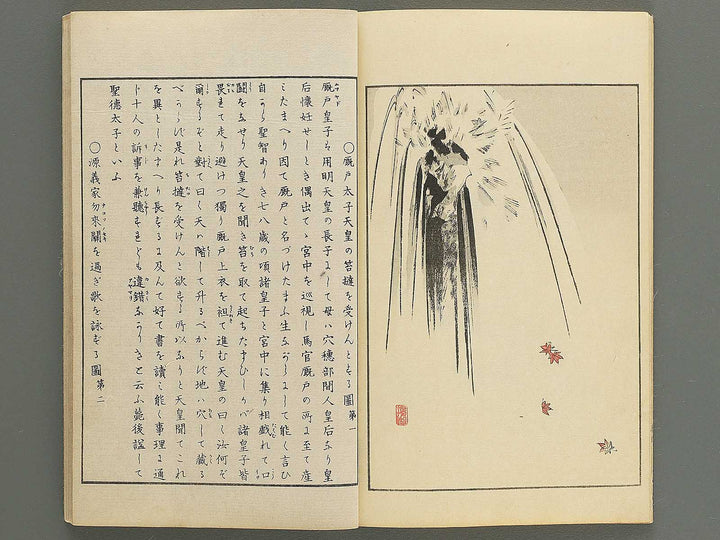 ○厩戸太子天皇の笞撻を受けんとする圖第一
厩戸皇子は用明天皇の長子にして母は穴穂部間人皇后なり皇
后懐妊せしとき偶出てゝ宮中を巡視し馬官厩戸の所に至て産
したまへり因て厩戸と名づけたまふ生ながらにして能く言ひ
自から聖智あり七八歳の頃諸皇子と宮中に集り相戯れて口
鬪をなせり天皇之を聞き笞を取て起ちたまひしかバ諸皇子皆
畏れて走り避けつ獨り厩戸上衣を袒て進む天皇の曰く汝何ぞ
爾するぞと對て曰く天ハ階して升るべからず地ハ穴して蔵る
べからず是れ笞撻を受けんと欲する所以なりと天皇聞てこれ
を異としたまへり長ずるに及んて好て書を讀ミ能く事理に通
じ十人の訴事を兼聽するとも違錯なかりきと云ふ薨後謚して
聖徳太子といふ
○源義家勿來關を過ぎ歌を詠ずる圖第二